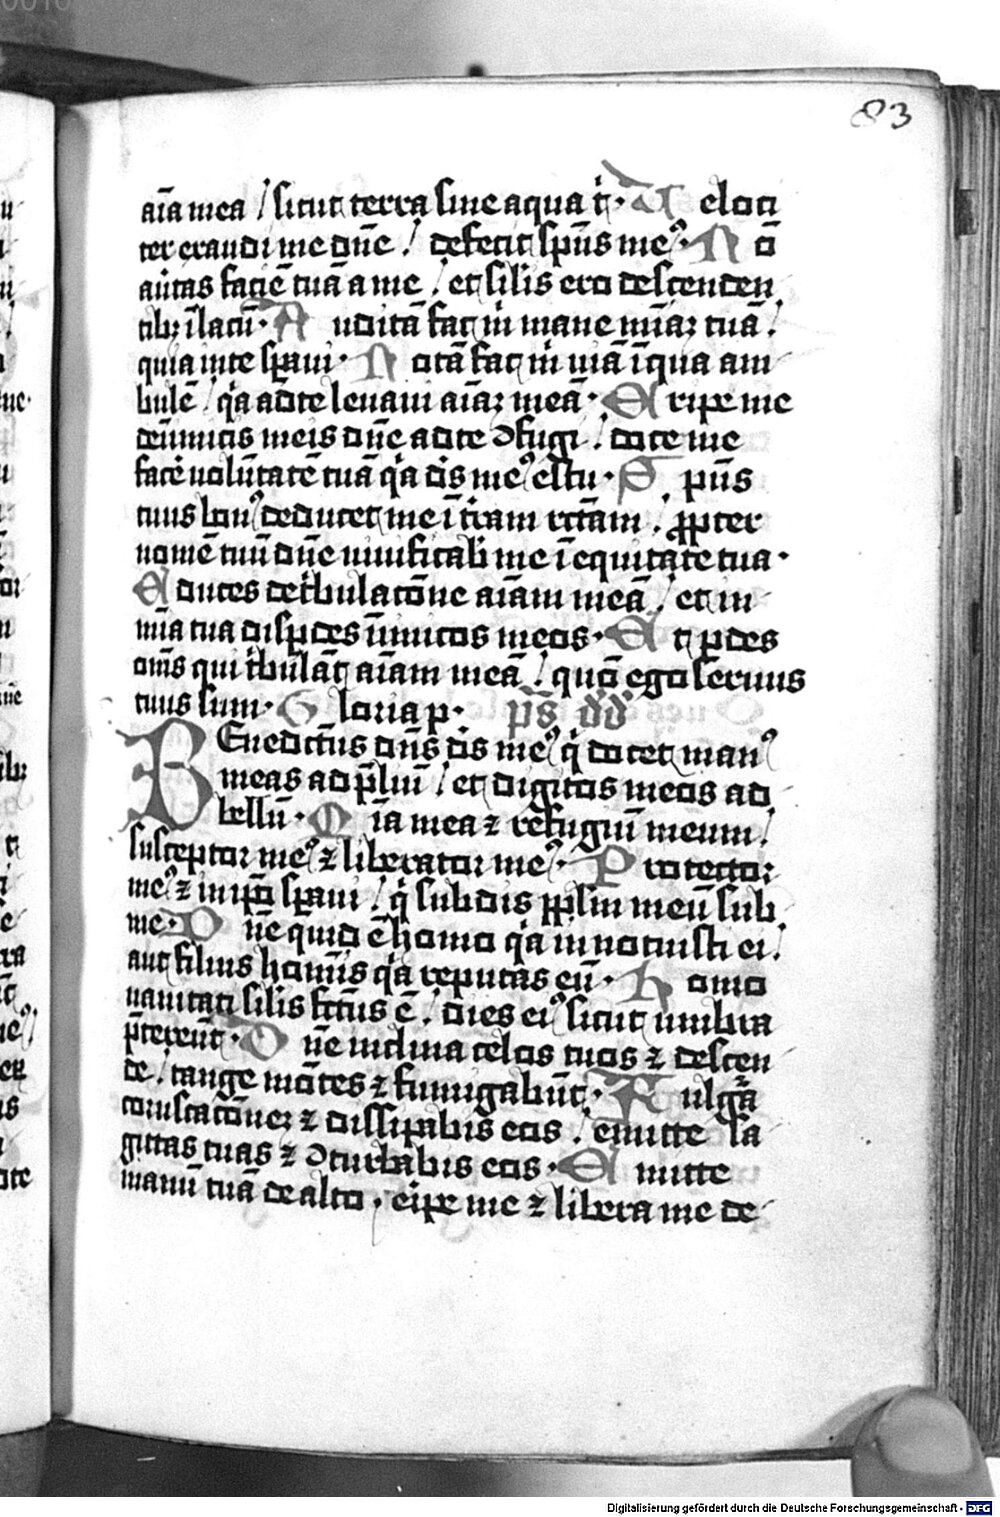 83
aīa mea / sicut terra sine aqua t̄. Ueloci
ter exaudi me dn̄e / defecit spūs meꝰ. N ō
au̇tas faciē tuā a me / et siĺis ero descenden
tibꝫ ī lacū. A uditā fac m̄ mane mīaꝫ tuā /
quia in te sꝑaui. N otā fac m̄ uiā ī qua am
bulē / q̇a ad te leuaui aīaꝫ meā. E ripe me
de īnimicis meis dn̄e ad te ↄfugi / doce me
fac̄e uolūtatē tuā q̇a ds̄ meꝰ es tu. S pūs
tuus bonꝰ deducet me ī t̄ram rc̄tam / ꝓpter
nomē tuū dn̄e uiuificab̄ me ī equitate tua.
E duces de t̄bulacōne aīam meā / et in
mīa tua disꝑdes īnimicos meos. E t ꝑdes
om̄s qui t̄bulāt aīam meā / quō ego seruus
tuus sum. G loria p. ps̄ dd̄
BEnedictus dn̄s ds̄ meꝰ q̇ docet manꝰ
meas ad p̄liū / et digitos meos ad
bellū. M īa mea ⁊ refugiū meum /
susceptor meꝰ ⁊ liberator meꝰ. P rotector
meꝰ ⁊ in ip̄o sꝑaui / q̇ subdis pp̄lm meū sub
me. D n̄e quid ē homo q̇a innotuisti ei /
aut filius homīs q̇a reputas eū. H omo
uanitati siĺis fc̄tus ē / dies eiꝰ sicut umbra
p̄tereūt. D n̄e inclina celos tuos ⁊ descen
de / tange mōtes ⁊ fumigabūt. F ulgā
coruscacōneꝫ ⁊ dissipabis eos / emitte sa
gittas tuas ⁊ ↄturbabis eos. E mitte
manū tuā de alto / eripe me ⁊ libera me de
Digitalisierung gefördert durch die Deutsche Forschungsgemeinschaft - DFG